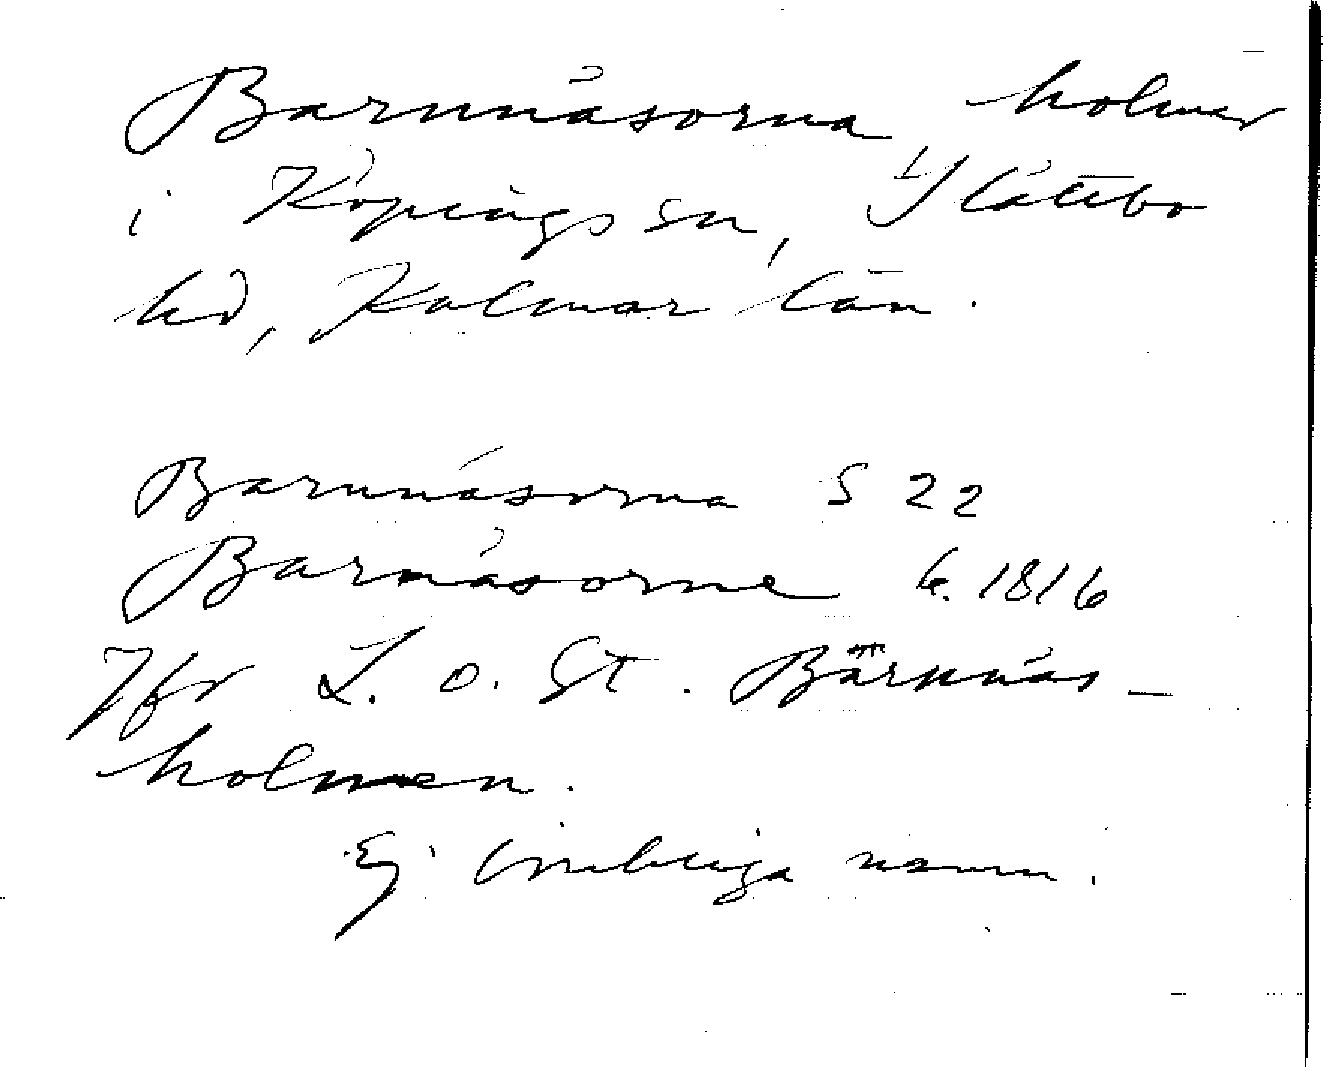 Barnnäsorna holmar
i Köpings sn, Slättbo
hd, Kalmar län.
Barnnäsorna S 22
Barnäsorne G. 1816
Jfr L. o. St. Bärnnäs-
holmen.
Ej namn.